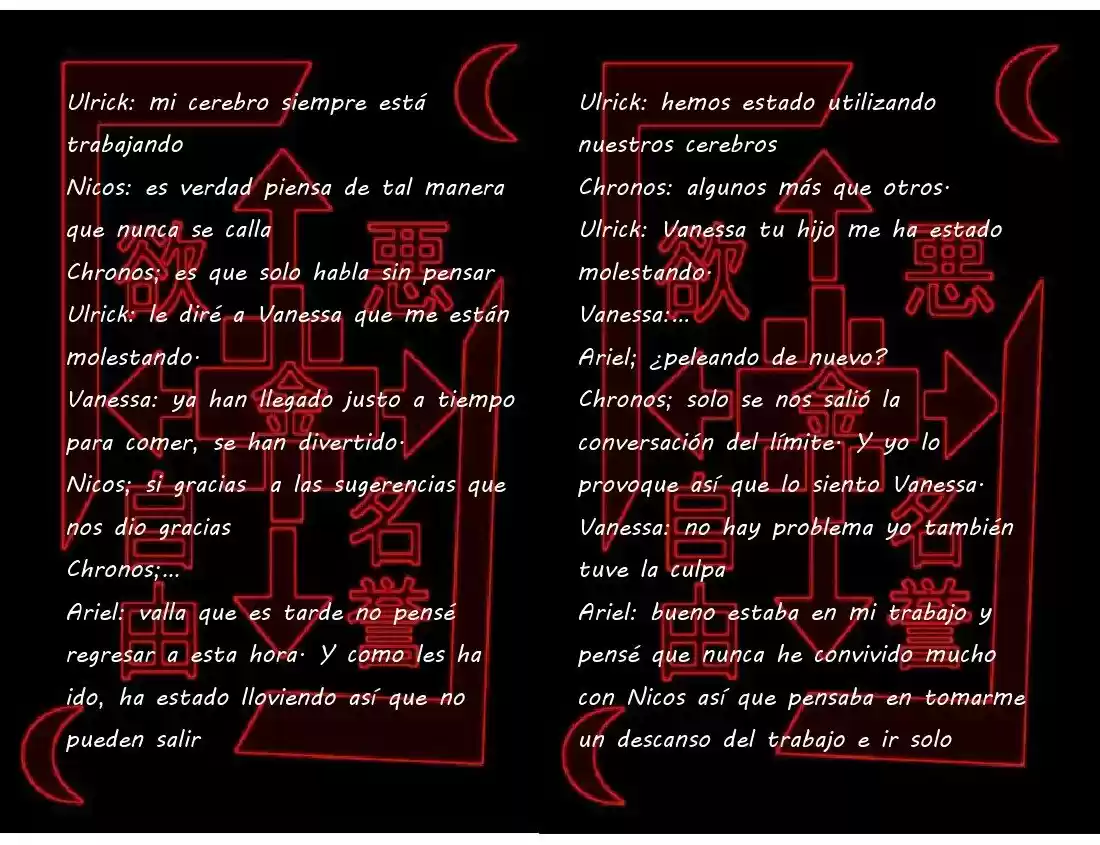 Ulrick: mi cerebro siempre está
trabajando
Nicos: es verdad piensa de tal manera
que nunca se calla
Chronos; es que solo habla sin pensar
Ulrick: le diré a Vanessa que me están
molestando.
Vanessa: ya han llegado justo a tiempo
para comer, se han divertido.
Nicos; si gracias a las sugerencias que
nos dio gracias
Chronos;...
Ariel: valla que es tarde no pensé
regresar a esta hora. Y como les ha
ido, ha estado lloviendo así que no
pueden salir
欲 悪
金
自由 名誉
Ulrick: hemos estado utilizando
nuestros cerebros
Chronos: algunos más que otros.
Ulrick: Vanessa tu hijo me ha estado
molestando.
Vanessa:...
Ariel; ¿peleando de nuevo?
Chronos; solo se nos salió la
conversación del límite. Y yo lo
provoque así que lo siento Vanessa.
Vanessa: no hay problema yo también
tuve la culpa
Ariel: bueno estaba en mi trabajo y
pensé que nunca he convivido mucho
con Nicos así que pensaba en tomarme
un descanso del trabajo e ir solo
欲 悪
金
自由 名誉